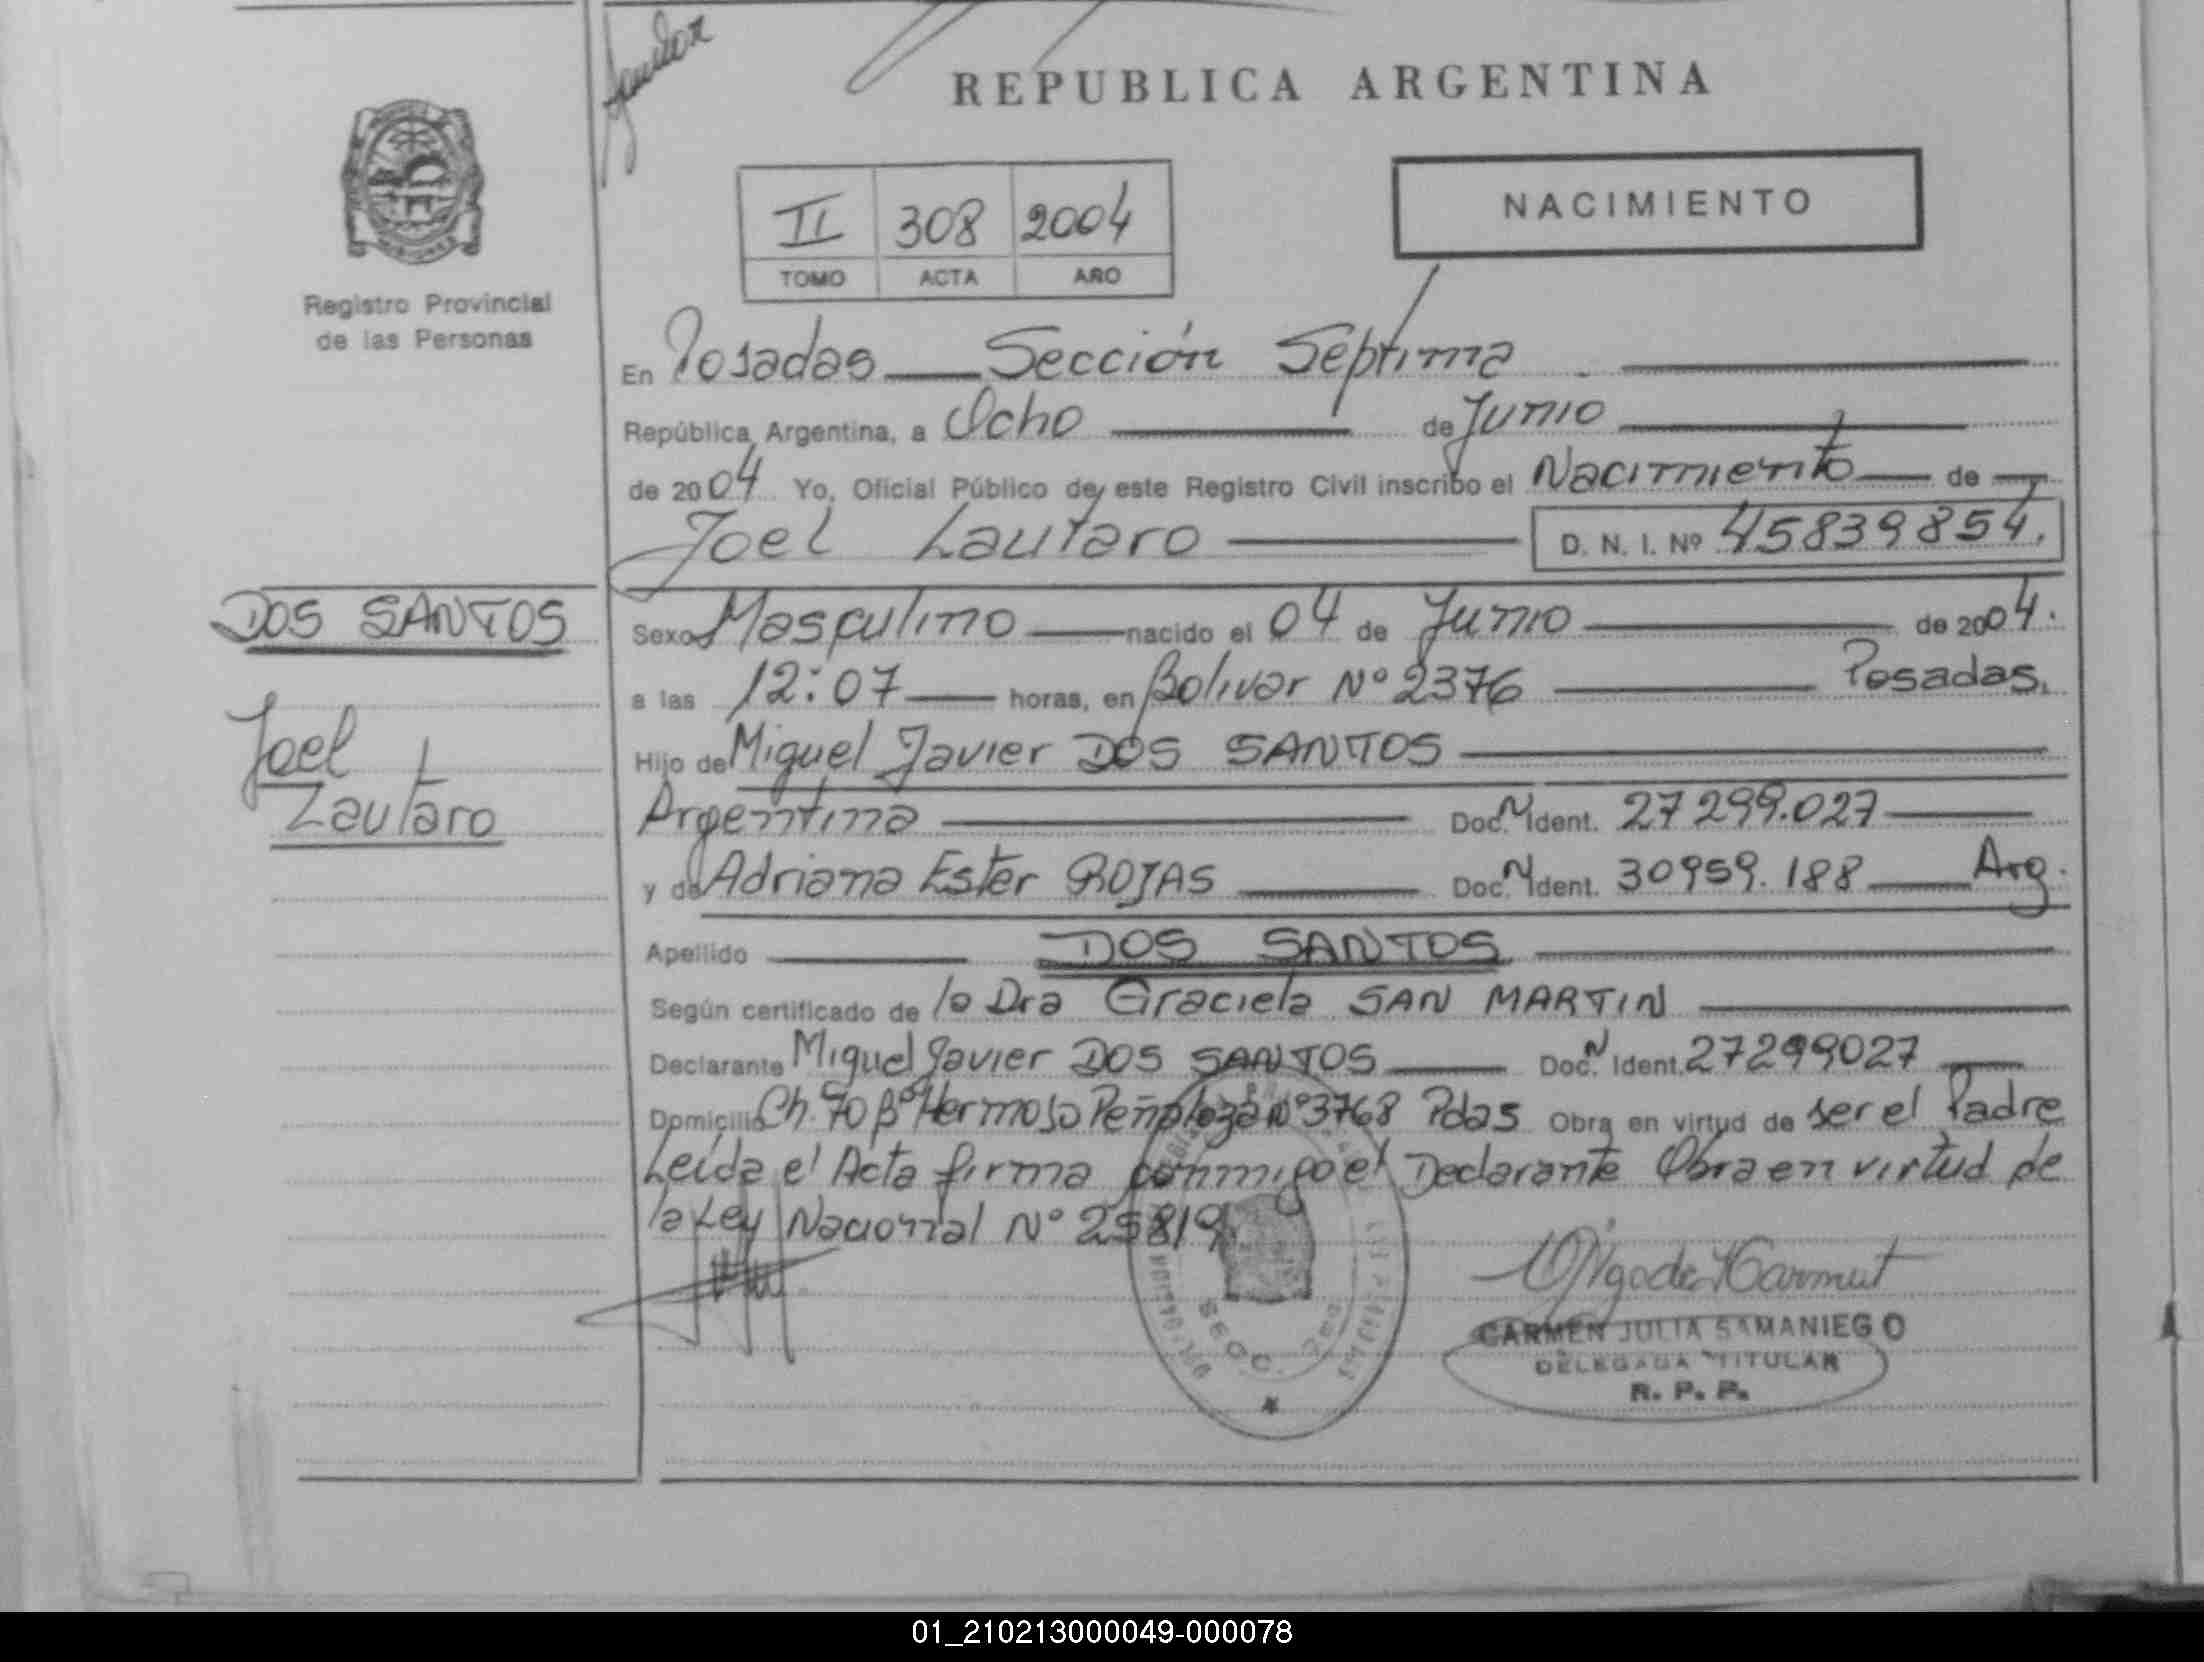 REPUBLICA ARGENTINA
NACIMIENTO
II 308 2004
TOMO ACTA AÑO
Registro Provincial
de las Personas
En Posadas Sección Séptima
República Argentina, a Ocho de Junio
de 2004 Yo, Oficial Público de este Registro Civil inscribo el Nacimiento de
Joel Lautaro D. N. I. Nº 45839854.
DOS SANTOS
Joel
Lautaro
Sexo Masculino nacido el 04 de Junio de 2004.
a las 12:07 horas, en Bolivar Nº 2376 Posadas.
Hijo de Miguel Javier DOS SANTOS
Argentina Doc. N Ident. 27299.027
y de Adriana Ester ROJAS Doc. N Ident. 30959.188 Arg.
Apellido DOS SANTOS
Según certificado de la Dra Graciela SAN MARTIN
Declarante Miguel Javier DOS SANTOS Doc. N Ident. 27299027
Domicilio Ch. 70 Bº Hermoso Peñaloza Nº 3768 Pdas Obra en virtud de ser el Padre
Leída el Acta firma conmigo el Declarante Obra en virtud de
la Ley Nacional Nº 25819
SECC. 7ma
CARMEN JULIA SAMANIEGO
DELEGADA TITULAR
R. P. P.
01_210213000049-000078